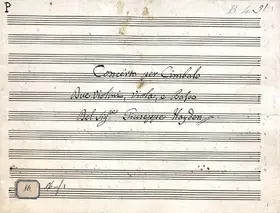 P
Concerto per Cimbalo
Due Violini, Viola, e Basso
Del Sig:re Giuseppe Hayden
16